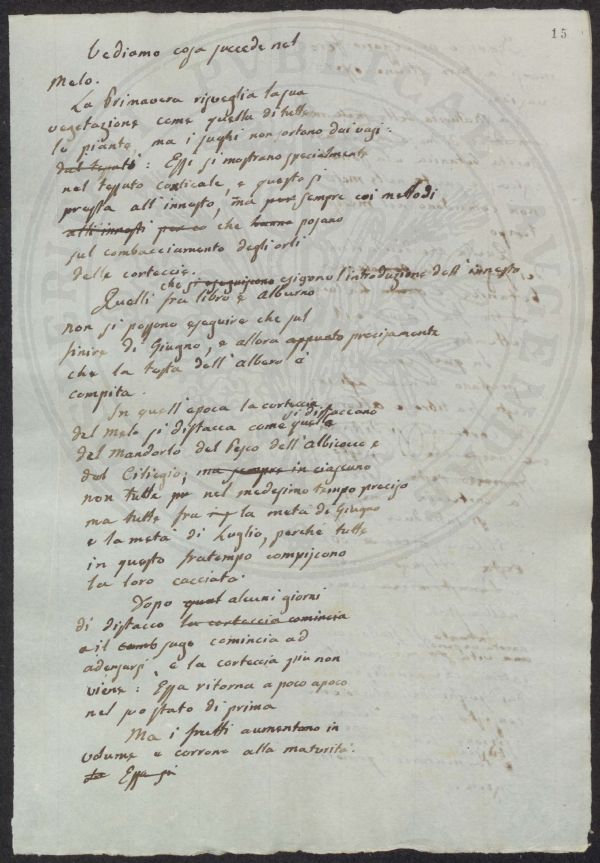 15
Vediamo cosa succede nel
Melo.
La Primavera risveglia la sua
vegetazione come quella di tutte
le piante, ma i sughi non sortono dai vasi.
dal tessuto: Essi si mostrano specialmente
nel tessuto corticale, e questo si
presta all'innesto, ma per sempre coi metodi
alli innesti per co che hanno posano
sul combacciamento degli orli
delle corteccie.
che si eseguiscono esigono l'introduzione dell'innesto
Quelli fra libro e alburno
non si possono eseguire che sul
finire di Giugno, e allora appunto precisamente
che la testa dell'albero è
compita.
In quell'epoca la corteccia
si distaccano
del Melo si distacca come quelle
del Mandorlo del Pesco dell'Albicocco e
del Ciliegio; ma sempre in ciascuno
non tutte nel medesimo tempo preciso
ma tutte fra la metà di Giugno
e la metà di Luglio, perché tutte
in questo fratempo compiscono
la loro cacciata.
Dopo qual alcuni giorni
di distacco la corteccia comincia
e il sugo comincia ad
adensarsi e la corteccia più non
viene: Essa ritorna a poco a poco
nel suo stato di prima
Ma i frutti aumentano in
volume e corrono alla maturità.
Essa si